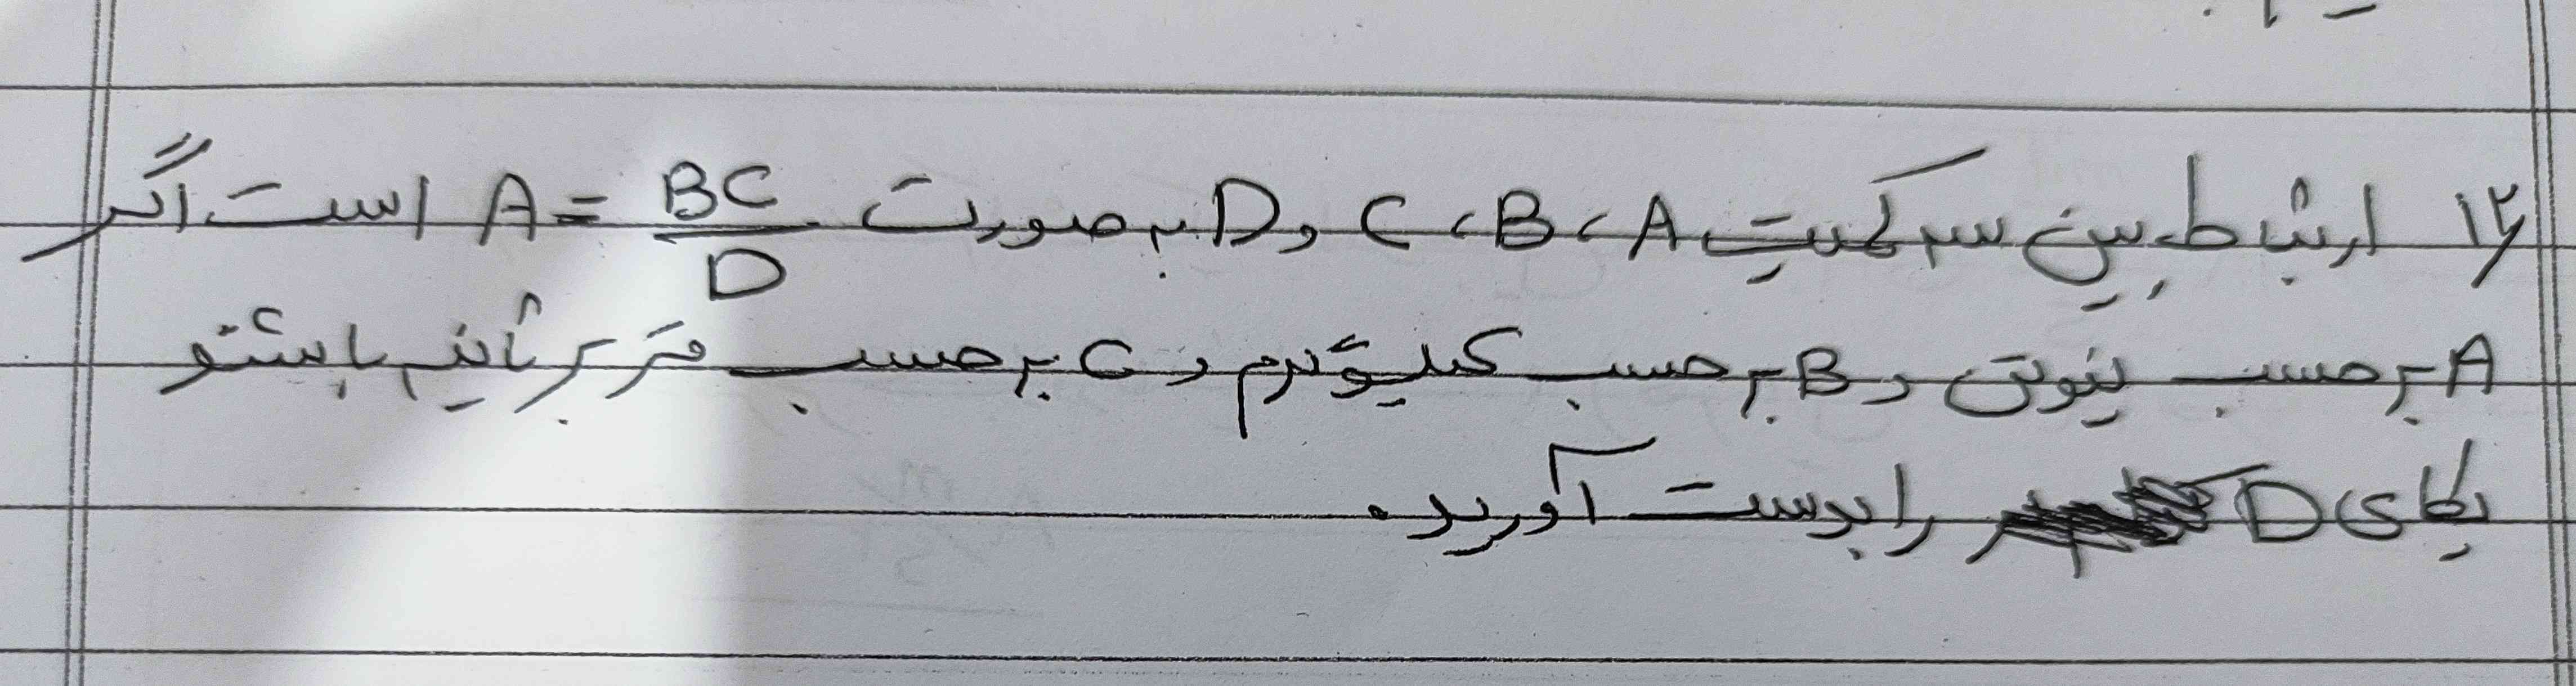 ۱۶ ارتباط بین سه کمیت A، B، C و D به صورت A = BC/D است اگر
A بر حسب نیوتن و B بر حسب کیلوگرم و C بر حسب متر بر ثانیه باشد و
یکای D را بدست آورید.